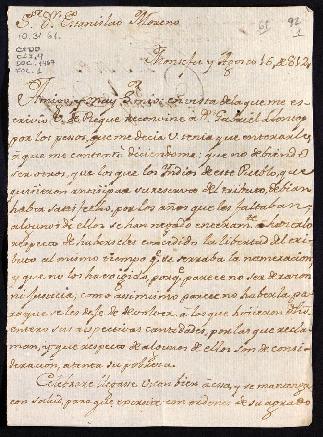 Sr. Dn. Estanislao Moreno
10.31 61.
61
92
1
CFDD
DOC. 1467
VOL. 1
Monsefu y Agosto 16, de 812,,
Amigo y muy Sr. mio: en vista de la que me es-
crivio V. de Reque reconvine á Dn. Gabriel Alonso
por los pesos, que me decia V. tenia que enterarles
à que me contextó diciendome; que no debian de
ser otros, que los que los Yndios de este Pueblo, que
quisieron anticipar su reserva del tributo, debian
haber satisfecho, por los años que les faltaban;
algunos de ellos se han negado enteramte. a hacerlo
respecto de haberseles concedido la libertad del tri-
buto al mismo tiempo q. se serraba la numeracion,
y que no los ha exigido, porq. parece no ser de razon
ni justicia, como asimismo parece no haberla, pa-
ra que se les deje de devolver, a los que hicieron di-
entero sus respectivas cantidades, por las que recla-
man, y que respecto de algunos de ellos son de consi-
deracion, atenta su pobreza.
Celebraré llegase V. con bien à esa, y se mantenga
con salud, para que exercite con ordenes de su agrado